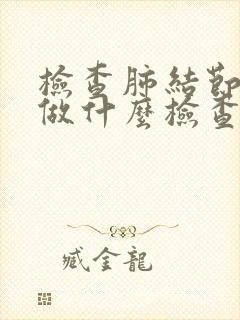 檢查肺結節
做什麼檢查
臧金龍